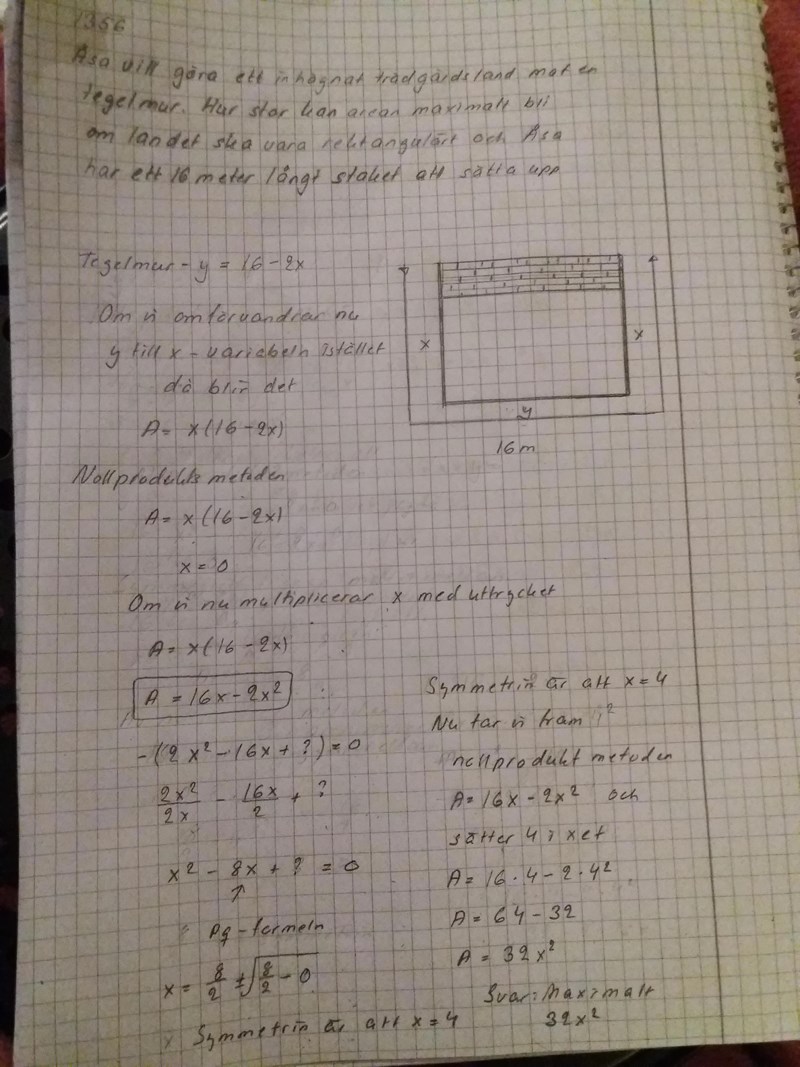 1356
Åsa vill göra ett inhägnat trädgårdsland mot en
tegelmur. Hur stor kan arean maximalt bli
om landet ska vara rektangulärt och Åsa
har ett 16 meter långt staket att sätta upp
Tegelmur - y = 16 - 2x
Om vi omförvandrar nu
y till x - variabeln istället
då blir det
A = x(16 - 2x)
x
x
y
16 m
Nollprodukts metoden
A = x(16 - 2x)
x = 0
Om vi nu multiplicerar x med uttrycket
A = x(16 - 2x)
A = 16x - 2x²
-(2x² - 16x + ?) = 0
2x²/2x - 16x/2 + ?
x² - 8x + ? = 0
↑
pq-formeln
x = 8/2 ± √(8/2 - 0)
Symmetrin är att x = 4
Symmetrin är att x = 4
Nu tar vi fram i²
nollprodukt metoden
A = 16x - 2x² och
sätter 4 i xet
A = 16 · 4 - 2 · 4²
A = 64 - 32
A = 32x²
Svar: Maximalt
32x²